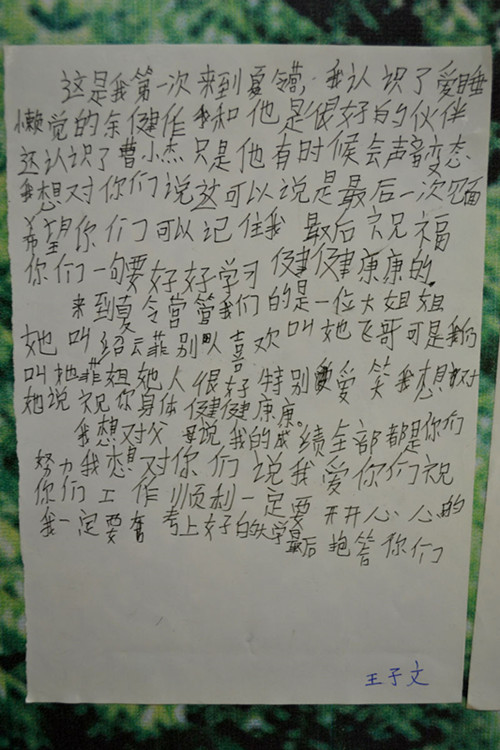 这是我第一次来到夏令营，我认识了爱睡
懒觉的余健作 我和他是很好的伙伴
还认识了曹小杰只是他有时候会声音变态
我想对你们说这可以说是最后一次见面
希望你们可以记住我 最后祝福
你们一句要好好学习 健健康康的.
来到夏令营管我们的是一位大姐姐
她叫绍云菲别人喜欢叫她飞哥可是我们
叫她菲姐她人很好特别爱笑我想对
她说祝你身体健健康康。
我想对父母说我的成绩全部都是你们
努力我想对你们说我爱你们祝
你们工作顺利一定要开开心心的
我一定要 考上好的大学最后抱答你们
王子文